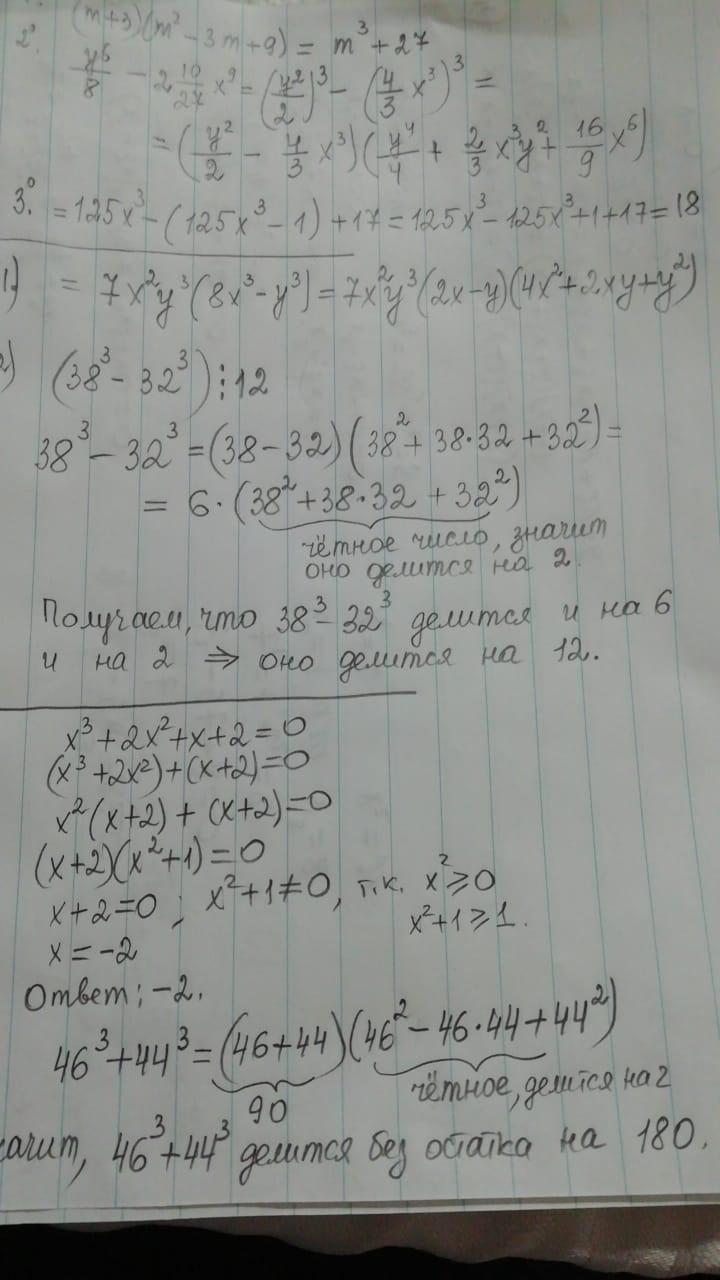 (m+3)(m²-3m+9) = m³+27
2°. y⁶/8 - 2 10/27 x⁹ = (y²/2)³ - (4/3 x³)³ =
= (y²/2 - 4/3 x³)(y⁴/4 + 2/3 x³y² + 16/9 x⁶)
3.° = 125x³-(125x³-1)+17 = 125x³-125x³+1+17 = 18
1) = 7x²y³(8x³-y³) = 7x²y³(2x-y)(4x²+2xy+y²)
2) (38³-32³)⋮12
38³-32³ = (38-32)(38²+38·32+32²) =
= 6·(38²+38·32+32²)
чётное число, значит
оно делится на 2.
Получаем, что 38³-32³ делится и на 6
и на 2 ⇒ оно делится на 12.
x³+2x²+x+2=0
(x³+2x²)+(x+2)=0
x²(x+2)+(x+2)=0
(x+2)(x²+1)=0
x+2=0 ; x²+1≠0, т.к. x²≥0
x²+1≥1.
x=-2
Ответ: -2.
46³+44³ = (46+44)(46²-46·44+44²)
90 чётное, делится на 2
начит, 46³+44³ делится без остатка на 180.